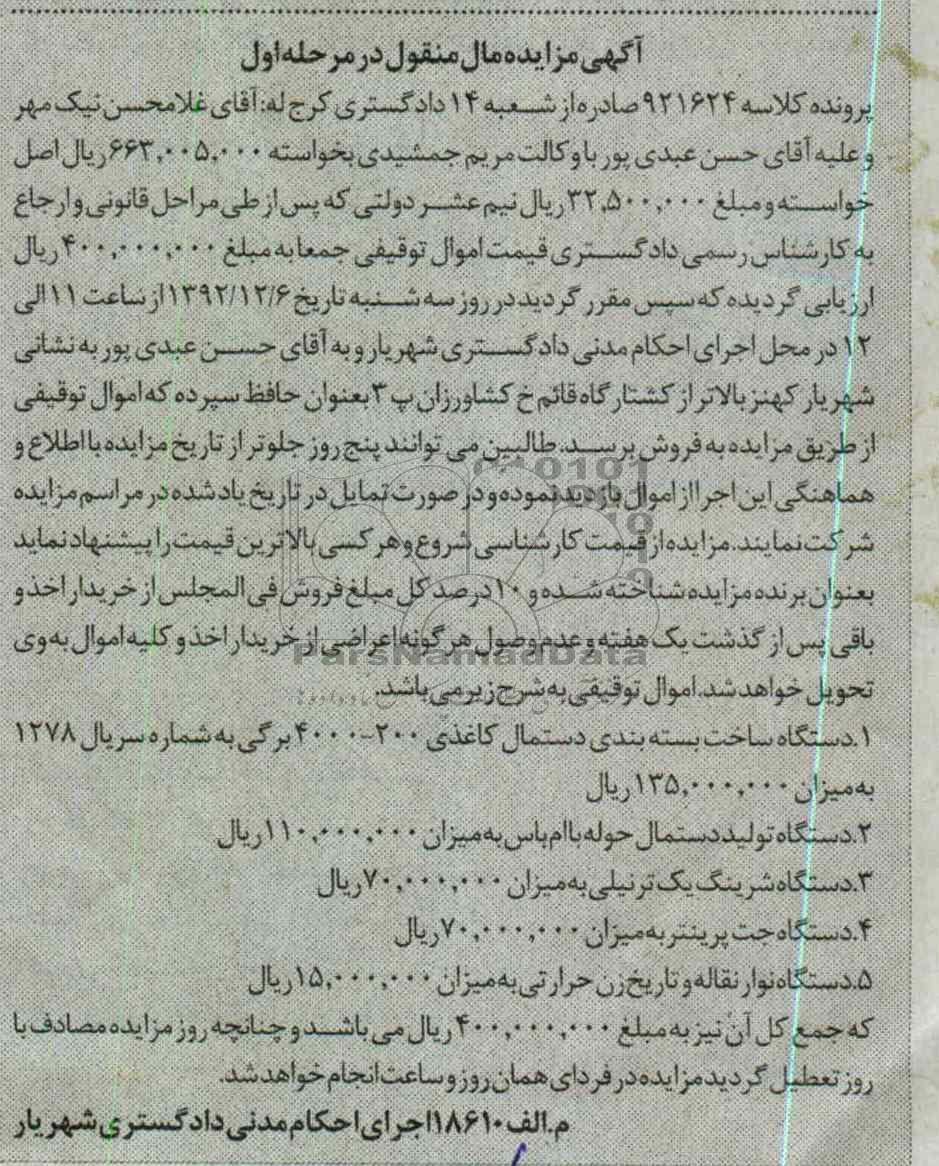 آگهی مزایده مال منقول در مرحله اول
پرونده کلاسه ۹۲۱۶۲۴ صادره از شعبه ۱۴ دادگستری کرج له: آقای غلامحسن نیک مهر
و علیه آقای حسن عبدی پور با وکالت مریم جمشیدی بخواسته ۶۶۳,۰۰۵,۰۰۰ ریال اصل
خواسته و مبلغ ۳۲,۵۰۰,۰۰۰ ریال نیم عشر دولتی که پس از طی مراحل قانونی و ارجاع
به کارشناس رسمی دادگستری قیمت اموال توقیفی جمعا به مبلغ ۴۰۰,۰۰۰,۰۰۰ ریال
ارزیابی گردیده که سپس مقرر گردید در روز سه شنبه تاریخ ۱۳۹۲/۱۲/۶ از ساعت ۱۱ الی
۱۲ در محل اجرای احکام مدنی دادگستری شهریار و به آقای حسن عبدی پور به نشانی
شهریار کهنز بالاتر از کشتارگاه قائم خ کشاورزان پ ۳ بعنوان حافظ سپرده که اموال توقیفی
از طریق مزایده به فروش برسد. طالبین می توانند پنج روز جلوتر از تاریخ مزایده با اطلاع و
هماهنگی این اجرا از اموال بازدید نموده و در صورت تمایل در تاریخ یاد شده در مراسم مزایده
شرکت نمایند. مزایده از قیمت کارشناسی شروع و هر کسی بالاترین قیمت را پیشنهاد نماید
بعنوان برنده مزایده شناخته شده و ۱۰ درصد کل مبلغ فروش فی المجلس از خریدار اخذ و
باقی پس از گذشت یک هفته و عدم وصول هرگونه اعراضی از خریدار اخذ و کلیه اموال به وی
ParsNamadData
تحویل خواهد شد. اموال توقیفی به شرح زیر می باشد.
۱.دستگاه ساخت بسته بندی دستمال کاغذی ۲۰۰-۴۰۰۰ برگی به شماره سریال ۱۲۷۸
به میزان ۱۳۵,۰۰۰,۰۰۰ ریال
۲.دستگاه تولید دستمال حوله با ام باس به میزان ۱۱۰,۰۰۰,۰۰۰ ریال
۳.دستگاه شرینگ یک تر نیلی به میزان ۷۰,۰۰۰,۰۰۰ ریال
۴.دستگاه جت پرینتر به میزان ۷۰,۰۰۰,۰۰۰ ریال
۵.دستگاه نوار نقاله و تاریخ زن حرارتی به میزان ۱۵,۰۰۰,۰۰۰ ریال
که جمع کل آن نیز به مبلغ ۴۰۰,۰۰۰,۰۰۰ ریال می باشد و چنانچه روز مزایده مصادف با
روز تعطیل گردید مزایده در فردای همان روز و ساعت انجام خواهد شد.
م.الف ۱۸۶۱۰ اجرای احکام مدنی دادگستری شهریار